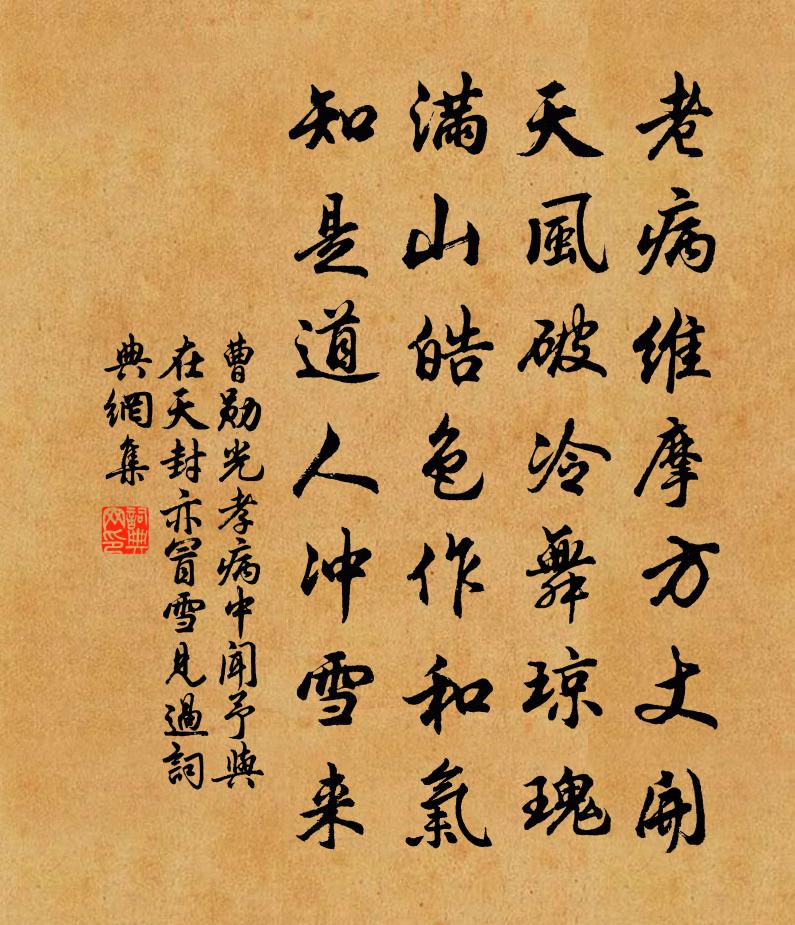 老病維摩方丈開
天風破冷舞琼瑰
满山皓色作和氣
知是道人冲雪来
曹勛光孝病中聞予與
在天封亦冒雪見過詞
典網集
詞典網印